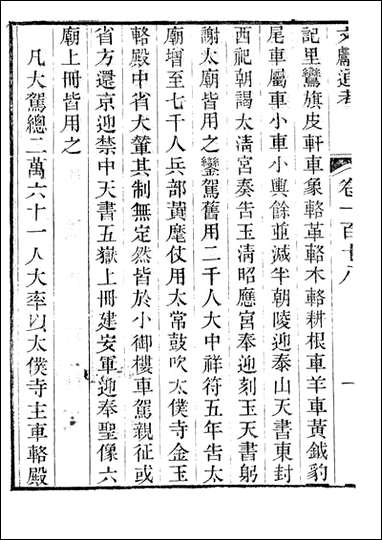 文獻通考 卷一百十八 一
記里鸞旗皮軒車象輅革輅木輅耕根車羊車黃鉞豹
尾車屬車小車小輿餘並減半朝陵迎泰山天書東封
西祀朝謁太淸宮奏告玉淸昭應宮奉迎刻玉天書躬
謝太廟皆用之鑾駕舊用二千人大中祥符五年告太
廟增至七千人兵部黃麾仗用太常鼓吹太僕寺金玉
輅殿中省大輦其制無定然皆於小御樓車駕親征或
省方還京迎禁中天書五嶽上冊建安軍迎奉聖像六
廟上冊皆用之
凡大駕總二萬六十一人大率以太僕寺主車輅殿